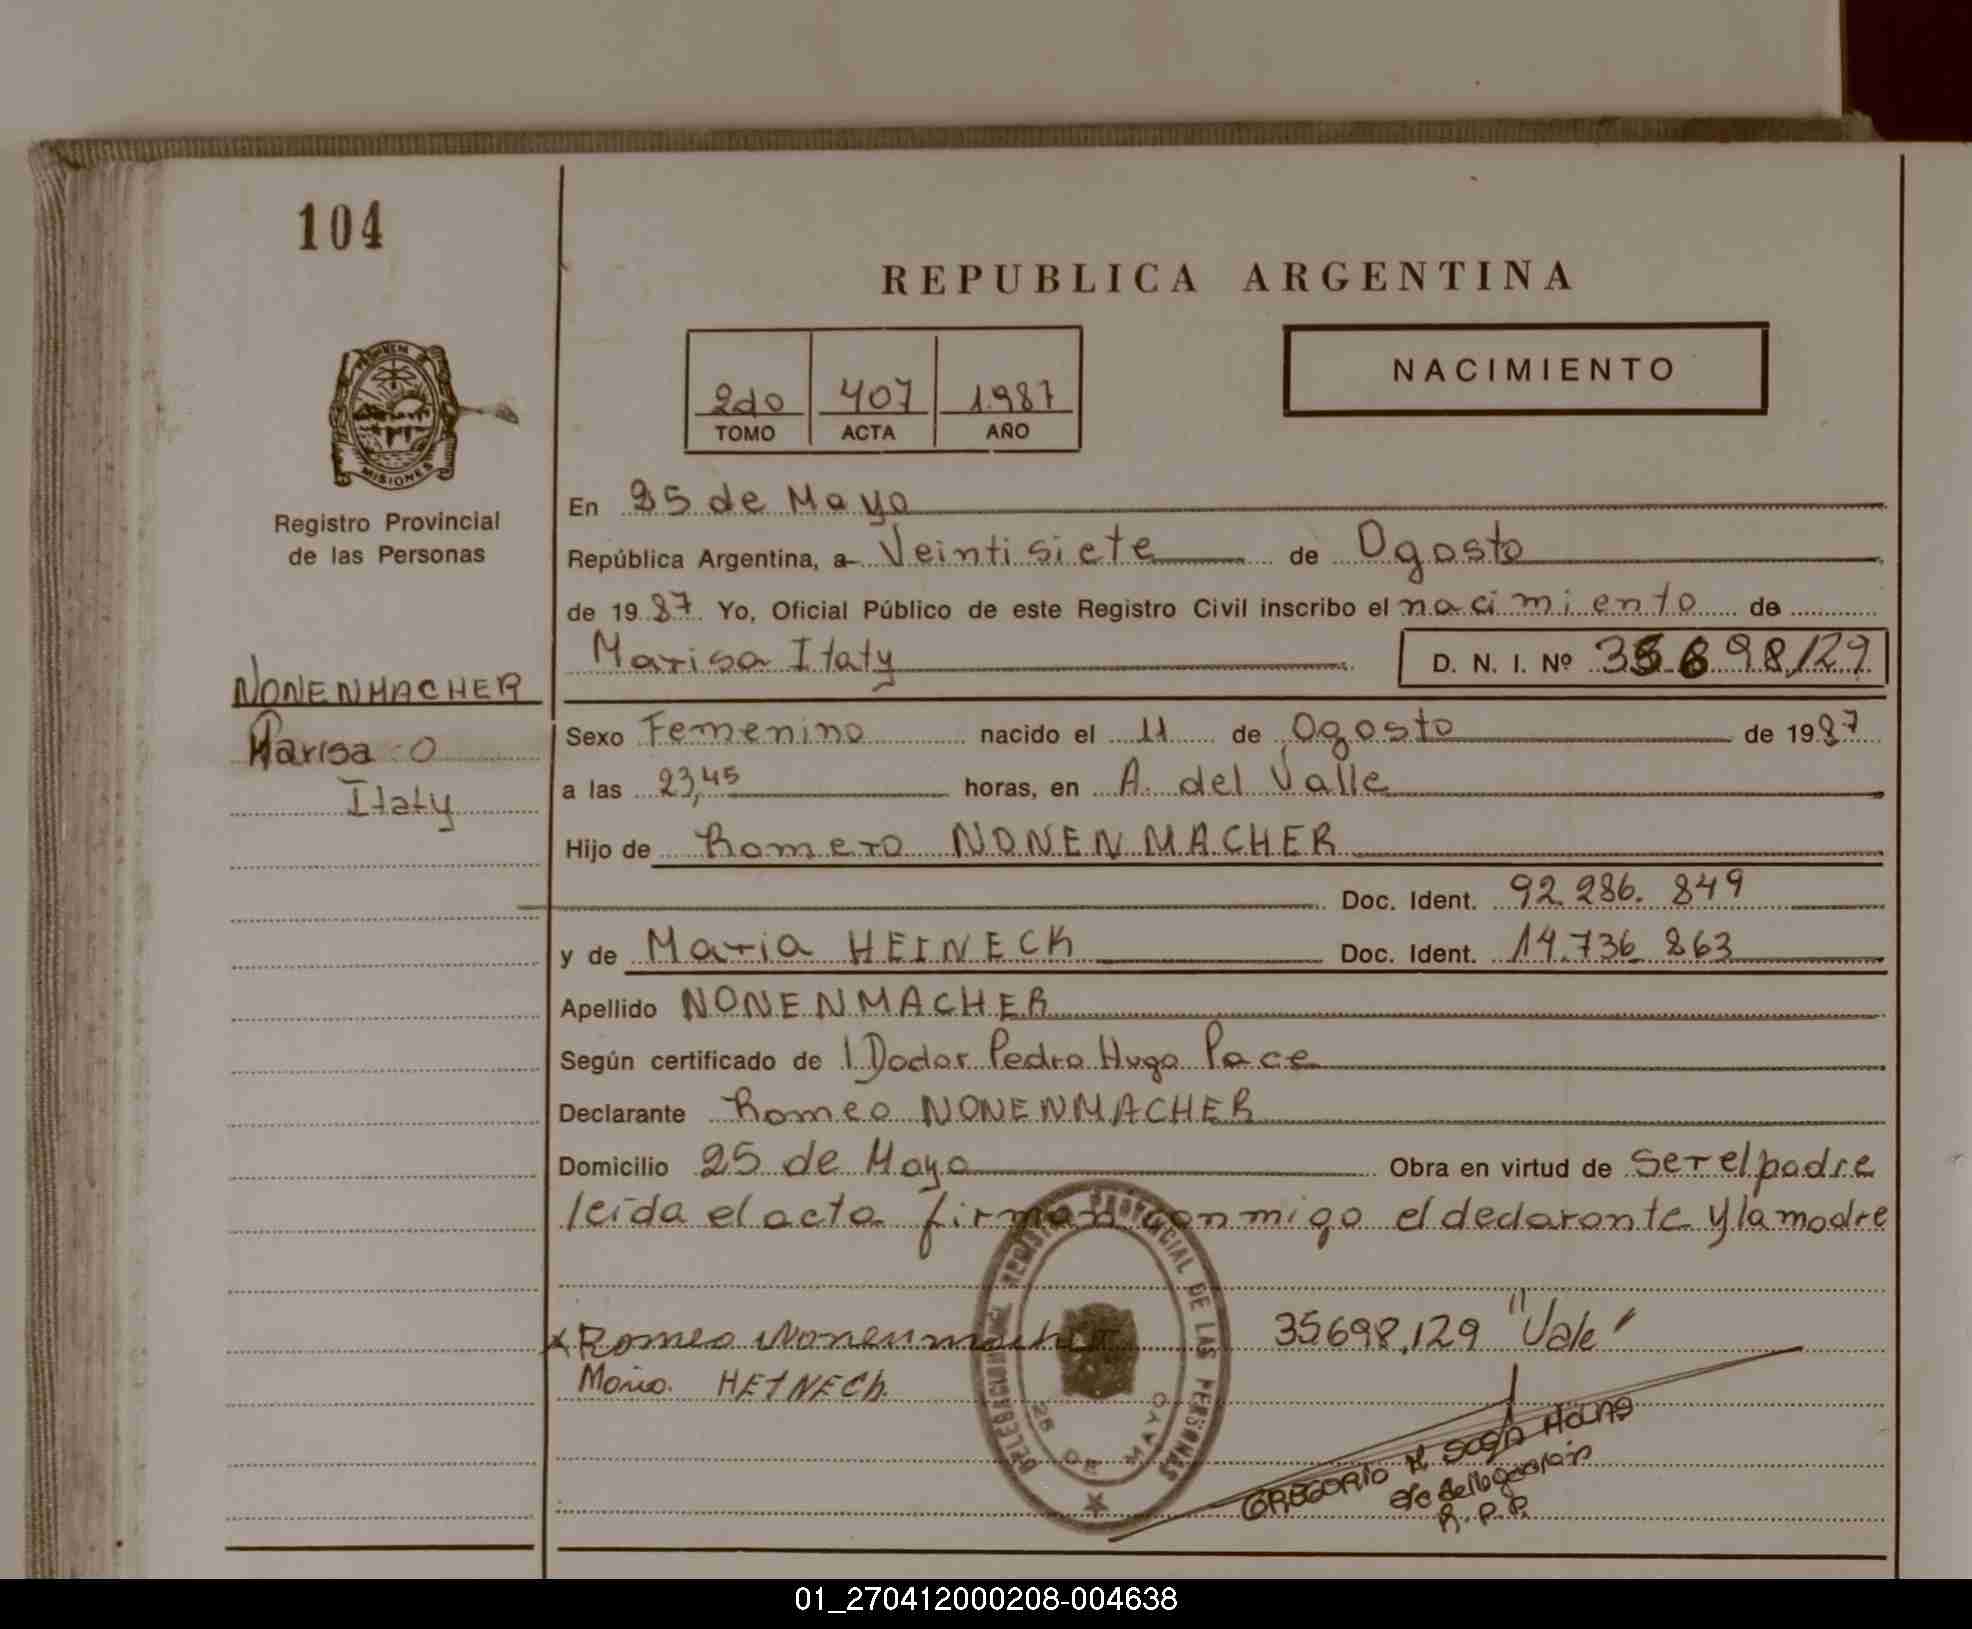 104
REPUBLICA ARGENTINA
NACIMIENTO
2do 407 1.987
TOMO ACTA AÑO
MISIONES
Registro Provincial
de las Personas
En 25 de Mayo
República Argentina, a Veintisiete de Agosto
de 1987. Yo, Oficial Público de este Registro Civil inscribo el nacimiento de
Marisa Itaty D. N. I. Nº 35698129
NONENMACHER
Marisa
Itaty
Sexo Femenino nacido el 11 de Agosto de 1987
a las 23,45 horas, en A. del Valle
Hijo de Romero NONENMACHER
Doc. Ident. 92.286.849
y de Maria HEINECK Doc. Ident. 14.736.863
Apellido NONENMACHER
Según certificado de l Doctor Pedro Hugo Pace
Declarante Romeo NONENMACHER
Domicilio 25 de Mayo Obra en virtud de ser el padre
leida el acta firman conmigo el declarante y la madre
x Romeo Nonenmacher 35698,129 "Vale"
Maria HEINECK
DELEGACION REGISTRO PROVINCIAL DE LAS PERSONAS
25 DE MAYO
GREGORIO
R. P. P.
01_270412000208-004638